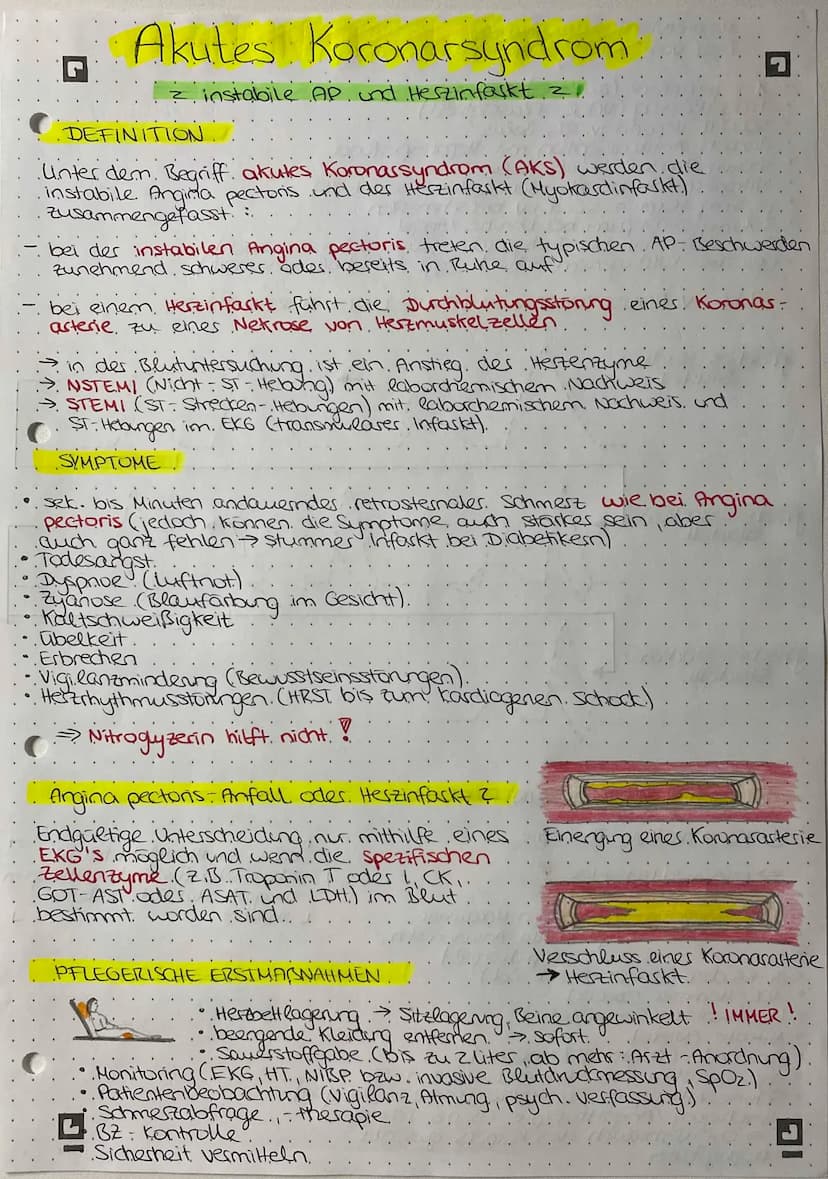 Akutes Koronarsyndrom
instabile AP und Herzinfarkt
DEFINITION
Unter dem Begriff akutes Koronarsyndrom (AKS) werden die
instabile Angina pectoris und der Herzinfarkt (Myokardinfarkt)
zusammengefasst :
- bei der instabilen Angina pectoris treten die typischen AP-Beschwerden
zunehmend schwerer oder bereits in Ruhe auf
- bei einem Herzinfarkt führt die Durchblutungsstörung einer Koronar-
arterie zu einer Nekrose von Herzmuskelzellen
→ in der Blutuntersuchung ist ein Anstieg der Herzenzyme
→ NSTEMI (Nicht-ST-Hebung) mit laborchemischem Nachweis
→ STEMI (ST-Strecken-Hebungen) mit laborchemischem Nachweis und
ST-Hebungen im EKG (transmuraler Infarkt).
SYMPTOME
• sek. bis Minuten andauernder retrosternaler Schmerz wie bei Angina
pectoris (jedoch können die Symptome auch stärker sein, aber
auch ganz fehlen → stummer Infarkt bei Diabetikern)
• Todesangst
• Dyspnoe (Luftnot)
• Zyanose (Blaufärbung im Gesicht)
• Kaltschweißigkeit
• Übelkeit
• Erbrechen
• Vigilanzminderung (Bewusstseinsstörungen)
• Herzrhythmusstörungen (HRST bis zum kardiogenen Schock)
⇒ Nitroglyzerin hilft nicht !
Angina pectoris-Anfall oder Herzinfarkt ?
Endgültige Unterscheidung nur mithilfe eines
EKG's möglich und wenn die spezifischen
Zellenzyme (z.B. Troponin T oder I, CK,
GOT-AST oder ASAT und LDH) im Blut
bestimmt worden sind.
Einengung einer Koronararterie
Verschluss einer Koronararterie
→ Herzinfarkt
PFLEGERISCHE ERSTMAßNAHMEN
• Herzbettlagerung → Sitzlagerung, Beine angewinkelt ! IMMER !
• beengende Kleidung entfernen → sofort
• Sauerstoffgabe (bis zu 2 Liter, ab mehr: Arzt-Anordnung)
• Monitoring (EKG, HT, NIBP bzw. invasive Blutdruckmessung, SpO2)
• Patientenbeobachtung (Vigilanz, Atmung, psych. Verfassung)
• Schmerzabfrage, -therapie
• BZ-Kontrolle
• Sicherheit vermitteln